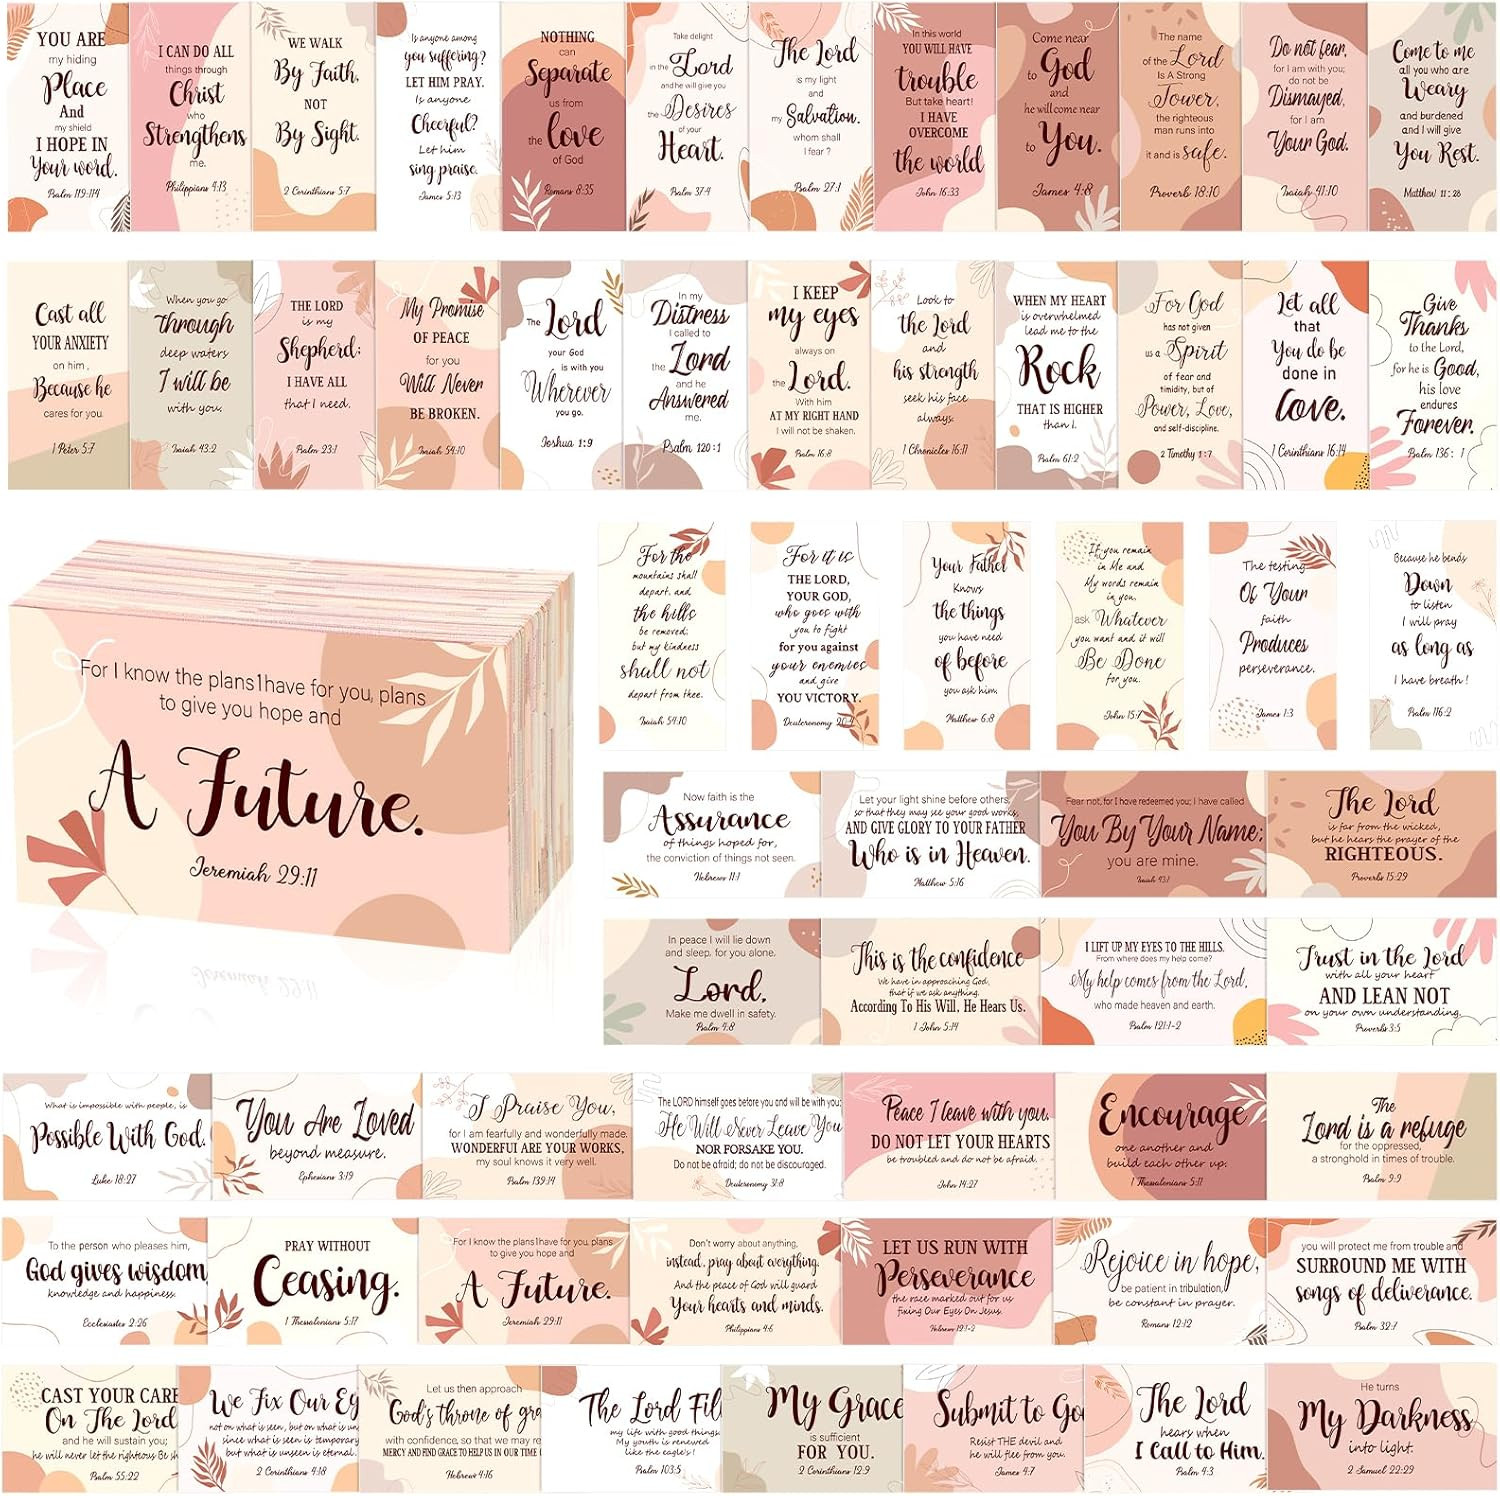 YOU ARE
my hiding
Place
And
my shield
I HOPE IN
Your word.
Psalm 119:114
I CAN DO ALL
things through
Christ
who
Strengthens
me.
Philippians 4:13
WE WALK
By Faith,
NOT
By Sight.
2 Corinthians 5:7
Is anyone among
you suffering?
LET HIM PRAY.
Is anyone
Cheerful?
Let him
sing praise.
James 5:13
NOTHING
can
Separate
us from
the love
of God
Romans 8:35
Take delight
in the Lord
and he will give you
the Desires
of your
Heart.
Psalm 37:4
The Lord
is my light
and
my Salvation.
whom shall
I fear ?
Psalm 27:1
In this world
YOU WILL HAVE
trouble
But take heart!
I HAVE
OVERCOME
the world
John 16:33
Come near
to God
and
he will come near
to You.
James 4:8
The name
of the Lord
Is A Strong
Tower,
the righteous
man runs into
it and is safe.
Proverb 18:10
Do not fear,
for I am with you;
do not be
Dismayed,
for I am
Your God.
Isaiah 41:10
Come to me
all you who are
Weary
and burdened
and I will give
You Rest.
Matthew 11:28
Cast all
YOUR ANXIETY
on him,
Because he
cares for you.
1 Peter 5:7
When you go
through
deep waters
I will be
with you.
Isaiah 43:2
THE LORD
is my
Shepherd;
I HAVE ALL
that I need.
Psalm 23:1
My Promise
OF PEACE
for you
Will Never
BE BROKEN.
Isaiah 54:10
The Lord
your God
is with you
Wherever
you go.
Joshua 1:9
In my
Distress
I called to
the Lord
and he
Answered
me.
Psalm 120:1
I KEEP
my eyes
always on
the Lord.
With him
AT MY RIGHT HAND
I will not be shaken.
Psalm 16:8
Look to
the Lord
and
his strength
seek his face
always.
1 Chronicles 16:11
WHEN MY HEART
is overwhelmed
lead me to the
Rock
THAT IS HIGHER
than I.
Psalm 61:2
For God
has not given
us a Spirit
of fear and
timidity, but of
Power, Love,
and self-discipline.
2 Timothy 1:7
Let all
that
You do be
done in
love.
1 Corinthians 16:14
Give
Thanks
to the Lord,
for he is Good,
his love
endures
Forever.
Psalm 136: 1
For I know the plans1have for you, plans
to give you hope and
A Future.
Jeremiah 29:11
For the
mountains shall
depart, and
the hills
be removed;
but my kindness
shall not
depart from thee.
Isaiah 54:10
For it is
THE LORD,
YOUR GOD,
who goes with
you to fight
for you against
your enemies
and give
YOU VICTORY.
Deuteronomy 20:4
Your Father
Knows
the things
you have need
of before
you ask him.
Matthew 6:8
If you remain
in Me and
My words remain
in you,
ask Whatever
you want and it will
Be Done
for you.
John 15:7
The testing
Of Your
faith
Produces
perseverance.
James 1:3
Because he bends
Down
to listen
I will pray
as long as
I have breath!
Psalm 116:2
Now faith is the
Assurance
of things hoped for,
the conviction of things not seen.
Hebrews 11:1
Let your light shine before others,
so that they may see your good works,
AND GIVE GLORY TO YOUR FATHER
Who is in Heaven.
Matthew 5:16
Fear not, for I have redeemed you; I have called
You By Your Name;
you are mine.
Isaiah 43:1
The Lord
is far from the wicked,
but he hears the prayer of the
RIGHTEOUS.
Proverbs 15:29
In peace I will lie down
and sleep, for you alone.
Lord,
Make me dwell in safety.
Psalm 4:8
This is the confidence
we have in approaching God,
that if we ask anything.
According To His Will, He Hears Us.
1 John 5:14
I LIFT UP MY EYES TO THE HILLS.
From where does my help come?
My help comes from the Lord,
who made heaven and earth.
Psalm 121:1-2
Trust in the Lord
with all your heart
AND LEAN NOT
on your own understanding.
Proverbs 3:5
What is impossible with people, is
Possible With God.
Luke 18:27
You Are Loved
beyond measure.
Ephesians 3:19
I Praise You,
for I am fearfully and wonderfully made.
WONDERFUL ARE YOUR WORKS,
my soul knows it very well.
Psalm 139:14
The LORD himself goes before you and will be with you;
He Will Never Leave You
NOR FORSAKE YOU.
Do not be afraid; do not be discouraged.
Deuteronomy 31:8
Peace I leave with you.
DO NOT LET YOUR HEARTS
be troubled and do not be afraid.
John 14:27
Encourage
one another and
build each other up.
1 Thessalonians 5:11
The
Lord is a refuge
for the oppressed,
a stronghold in times of trouble.
Psalm 9:9
To the person who pleases him,
God gives wisdom
knowledge and happiness.
Ecclesiastes 2:26
PRAY WITHOUT
Ceasing.
1 Thessalonians 5:17
For I know the plans1have for you, plans
to give you hope and
A Future.
Jeremiah 29:11
Don't worry about anything,
instead, pray about everything.
And the peace of God will guard
Your hearts and minds.
Philippians 4:6
LET US RUN WITH
Perseverance
the race marked out for us
fixing Our Eyes On Jesus.
Hebrews 12:1-2
Rejoice in hope,
be patient in tribulation,
be constant in prayer.
Romans 12:12
you will protect me from trouble and
SURROUND ME WITH
songs of deliverance.
Psalm 32:7
CAST YOUR CARE
On The Lord
and he will sustain you;
he will never let the righteous Be sh
Psalm 55:22
We Fix Our Ey
not on what is seen, but on what is un
since what is seen is temporary
but what is unseen is eternal.
2 Corinthians 4:18
Let us then approach
God's throne of gra
with confidence, so that we may re
MERCY AND FIND GRACE TO HELP US IN OUR TIME
Hebrews 4:16
The Lord Fill
my life with good things
My youth is renewed
like the eagle's!
Psalm 103:5
My Grace
is sufficient
FOR YOU.
2 Corinthians 12:9
Submit to Go
Resist THE devil and
he will flee from you.
James 4:7
The Lord
hears when
I Call to Him.
Psalm 4:3
He turns
My Darkness
into light.
2 Samuel 22:29